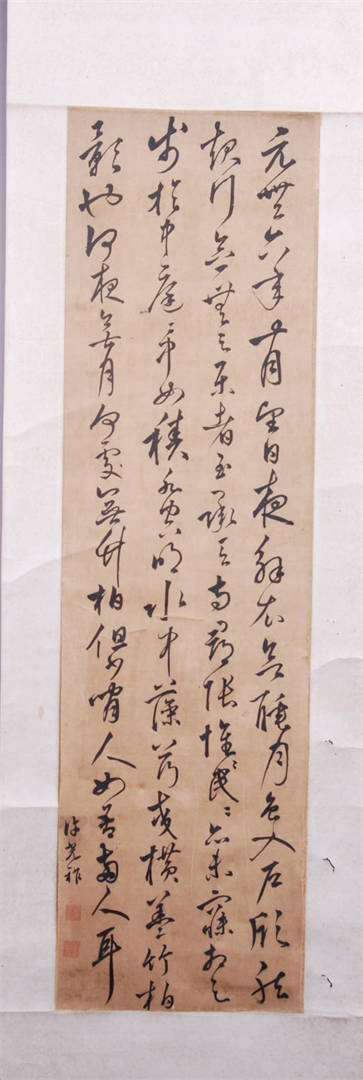 元豐六年十月望日夜解衣欲睡月色入戶欣然
起行念無與樂者至承天寺尋張懷〻民〻亦未寢相与
步於中庭下如積水空明水中藻荇交橫盖竹柏
影也何夜無月何處無竹柏但少閒人如吾兩人耳
許光祚